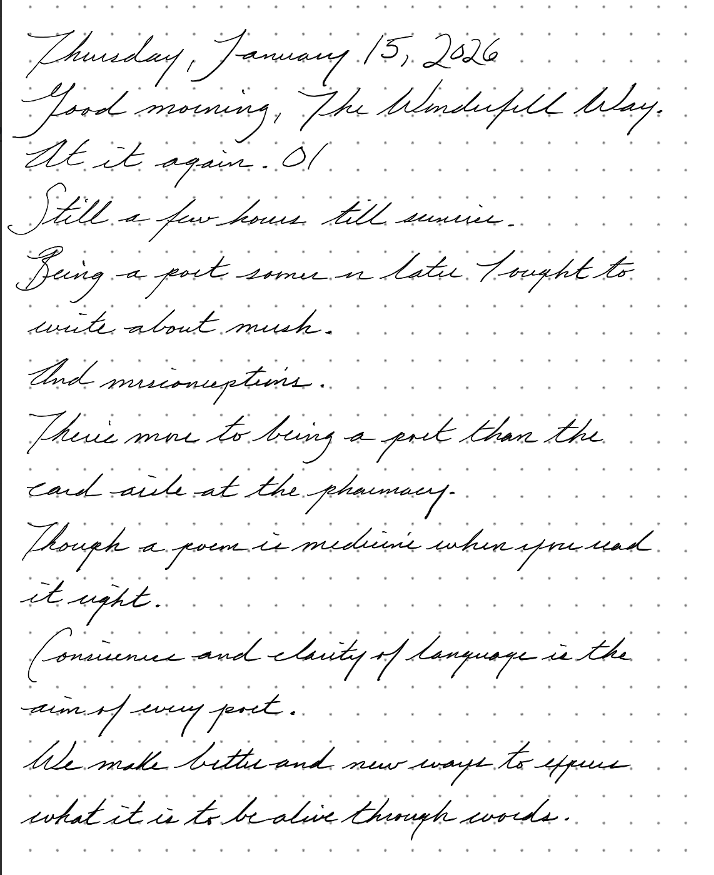 Thursday, January 15, 2026
Good morning, The Wonderfull Way.
At it again. 01
Still a few hours till sunrise.
Being a poet sooner or later I ought to
write about mush.
And misconceptions.
There's more to being a poet than the
card aisle at the pharmacy.
Though a poem is medicine when you read
it right.
Conciseness and clarity of language is the
aim of every poet.
We make better and new ways to express
what it is to be alive through words.